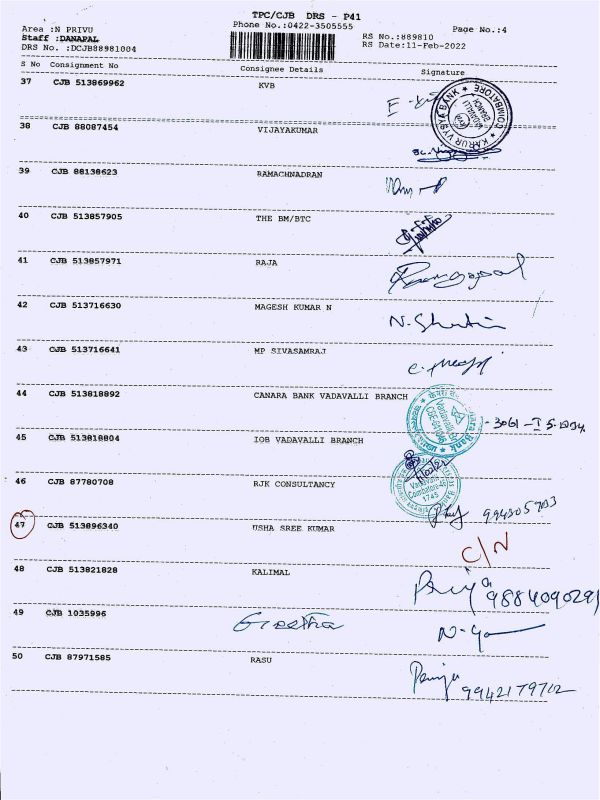 TPC/CJB DRS - P41
Area :N PRIVU
Phone No.:0422-3505555
Page No.:4
Staff :DANAPAL
RS No.:889810
DRS No. :DCJB88981004
RS Date:11-Feb-2022
S No Consignment No Consignee Details Signature
37 CJB 513869962 KVB
KARUR VYSYA BANK * COIMBATORE *
VADAVALLI BRANCH
38 CJB 88087454 VIJAYAKUMAR
39 CJB 88138623 RAMACHNADRAN
40 CJB 513857905 THE BM/BTC
41 CJB 513857971 RAJA
42 CJB 513716630 MAGESH KUMAR N
43 CJB 513716641 MP SIVASAMRAJ
44 CJB 513818892 CANARA BANK VADAVALLI BRANCH
45 CJB 513818804 IOB VADAVALLI BRANCH
46 CJB 87780708 RJK CONSULTANCY
Coimbatore-41
1745
47 CJB 513896340 USHA SREE KUMAR
C/N
48 CJB 513821828 KALIMAL
Priya 9884090291
49 CJB 1035996 Geetha
50 CJB 87971585 RASU
9942179712